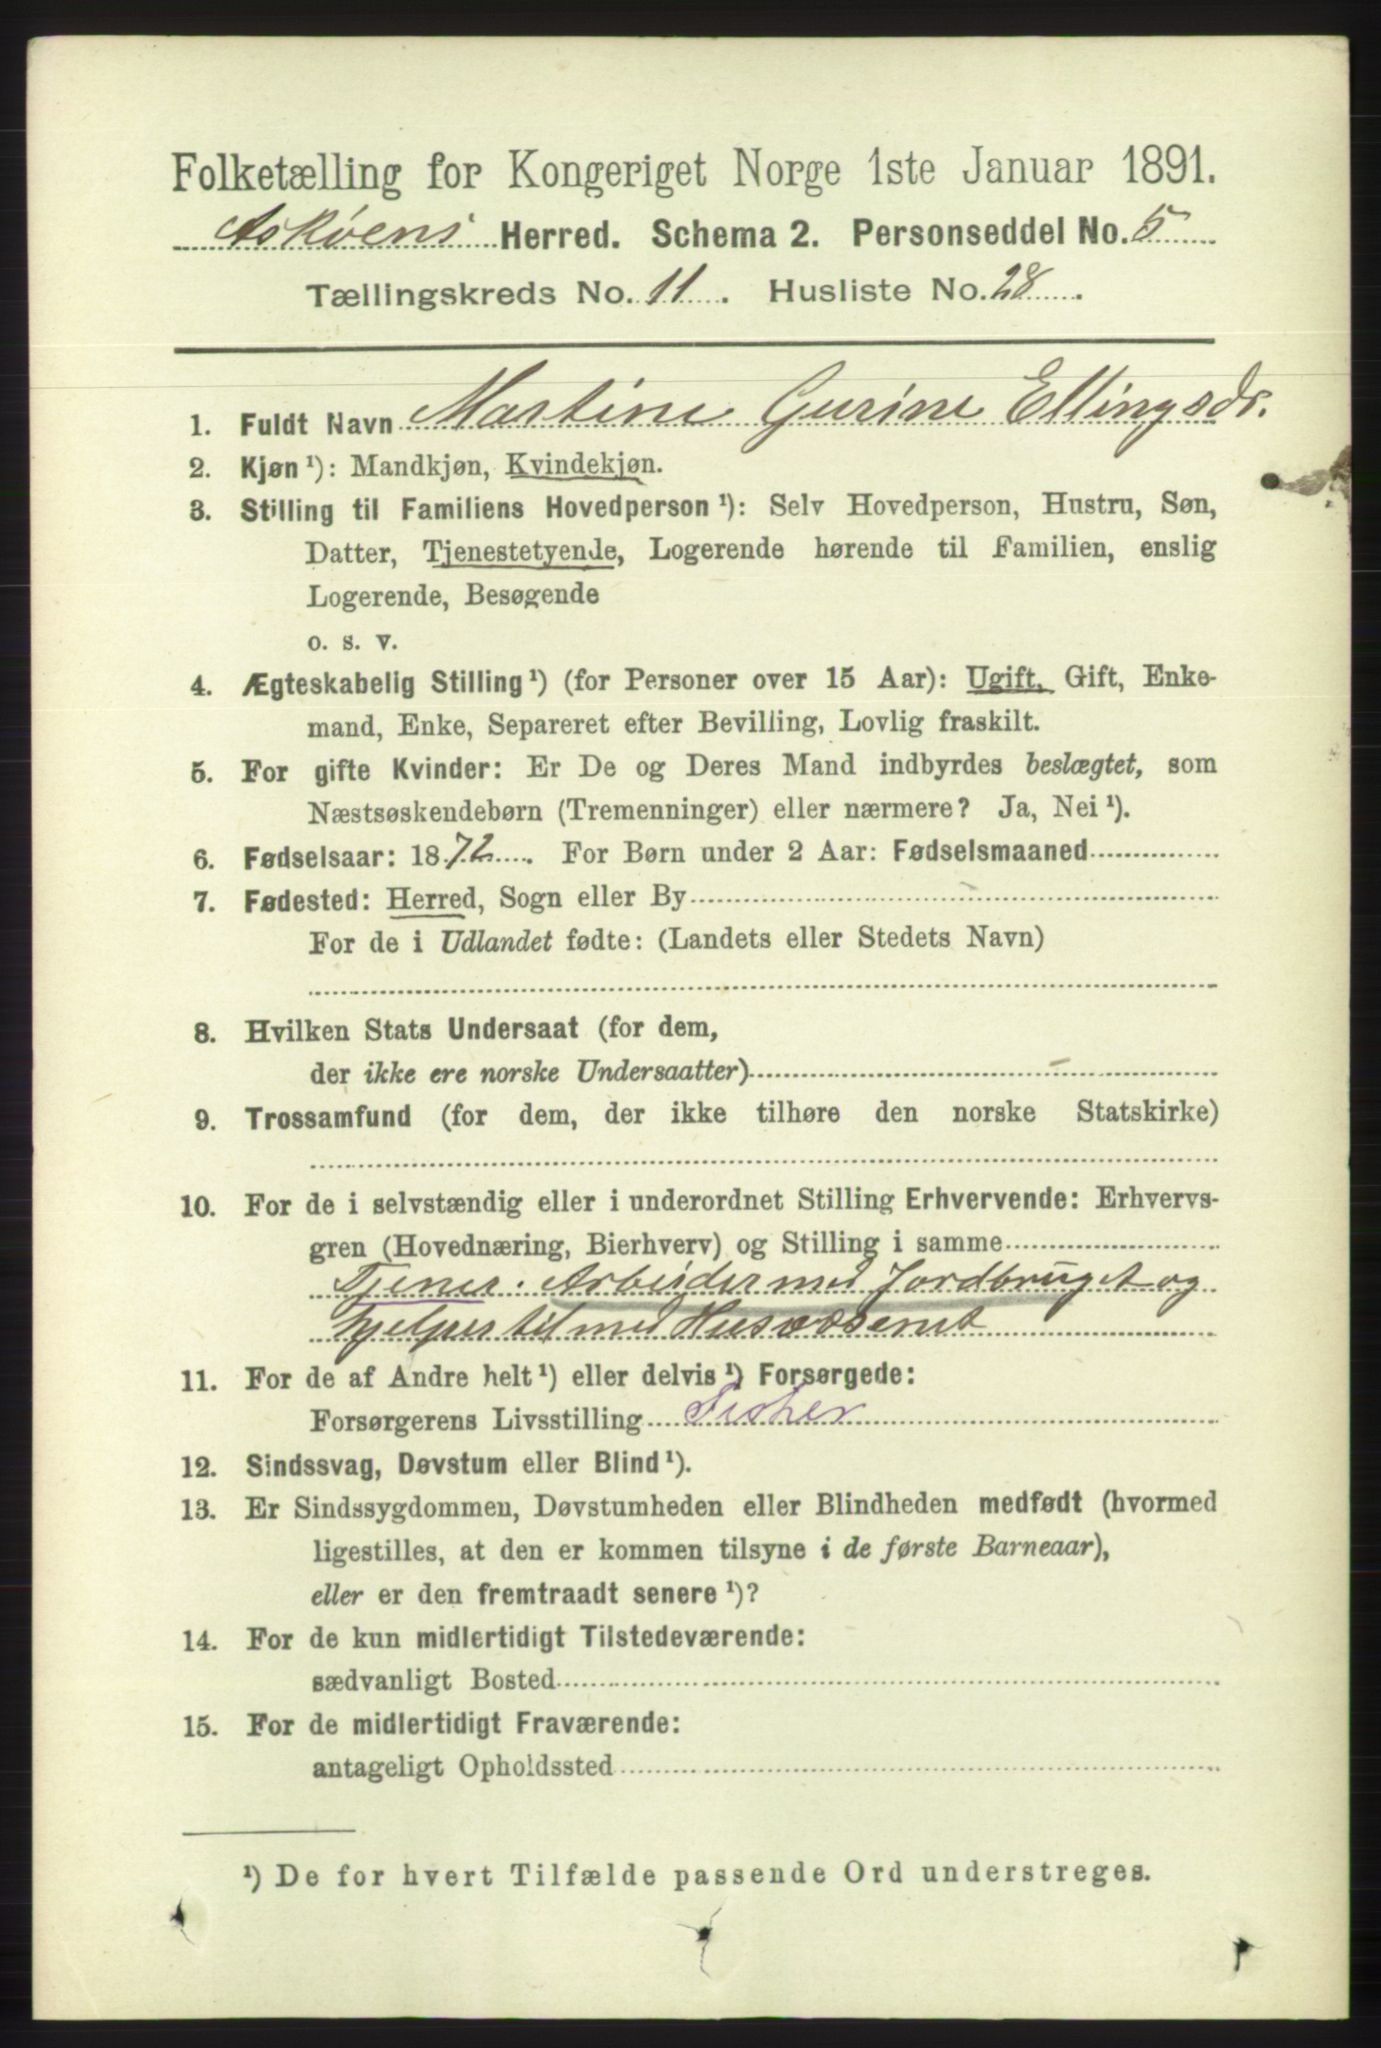 Folketælling for Kongeriget Norge 1ste Januar 1891.
Askøens Herred. Schema 2. Personseddel No. 5
Tællingskreds No. 11. Husliste No. 28.
1. Fuldt Navn Martine Gurine Ellingsdr.
2. Kjøn ¹): Mandkjøn, Kvindekjøn.
3. Stilling til Familiens Hovedperson ¹): Selv Hovedperson, Hustru, Søn,
Datter, Tjenestetyende, Logerende hørende til Familien, enslig
Logerende, Besøgende
o. s. v.
4. Ægteskabelig Stilling ¹) (for Personer over 15 Aar): Ugift, Gift, Enke-
mand, Enke, Separeret efter Bevilling, Lovlig fraskilt.
5. For gifte Kvinder: Er De og Deres Mand indbyrdes beslægtet, som
Næstsøskendebørn (Tremenninger) eller nærmere? Ja, Nei ¹).
6. Fødselsaar: 1872. For Børn under 2 Aar: Fødselsmaaned
7. Fødested: Herred, Sogn eller By
For de i Udlandet fødte: (Landets eller Stedets Navn)
8. Hvilken Stats Undersaat (for dem,
der ikke ere norske Undersaatter)
9. Trossamfund (for dem, der ikke tilhøre den norske Statskirke)
10. For de i selvstændig eller i underordnet Stilling Erhvervende: Erhvervs-
gren (Hovednæring, Bierhverv) og Stilling i samme
Tjener. Arbeider med Jordbruget og
hjelper til med Husvæsenet
11. For de af Andre helt ¹) eller delvis ¹) Forsørgede:
Forsørgerens Livsstilling Fisker
12. Sindssvag, Døvstum eller Blind ¹).
13. Er Sindssygdommen, Døvstumheden eller Blindheden medfødt (hvormed
ligestilles, at den er kommen tilsyne i de første Barneaar),
eller er den fremtraadt senere ¹)?
14. For de kun midlertidigt Tilstedeværende:
sædvanligt Bosted
15. For de midlertidigt Fraværende:
antageligt Opholdssted
¹) De for hvert Tilfælde passende Ord understreges.